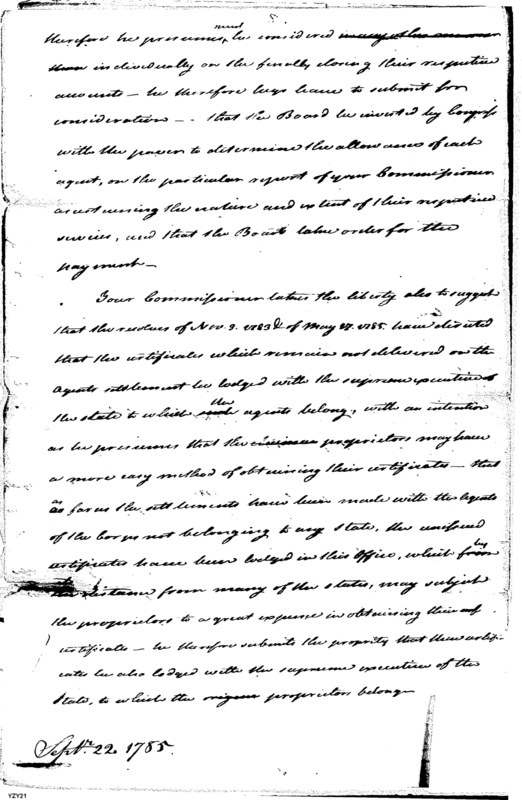 must
therefore he presumes, be considered in any other manner
than individually on the finally closing their respective
accounts – he therefore begs leave to submit for
consideration – that the Board be invested by Congress
with the power to determine the allowances of each
agent, on the particular report of your Commissioner
ascertaining the nature and extent of their respective
services, and that the Board take order for the
payment –
Your Commissioner takes the liberty also to suggest
that the resolves of Nov. 3. 1783 & of May 27. 1785. have directed
that the certificates which remain not delivered on the
agents settlement be lodged with the supreme executive of
the
the state to which such agents belong, with an intention
as he presumes that the proprietors may have
a more easy method of obtaining their certificates – that
as
as far as the settlements have been made with the Agents
of the Corps not belonging to any State, the unissued
certificates have been lodged in this Office, which from
the distance from many of the states, may subject
the proprietors to a great expence in obtaining their
certificates – he therefore submits the propriety that these certifi-
cates be also lodged with the supreme executive of the
State, to which the proprietors belong
Septr. 22. 1785.
YZY21